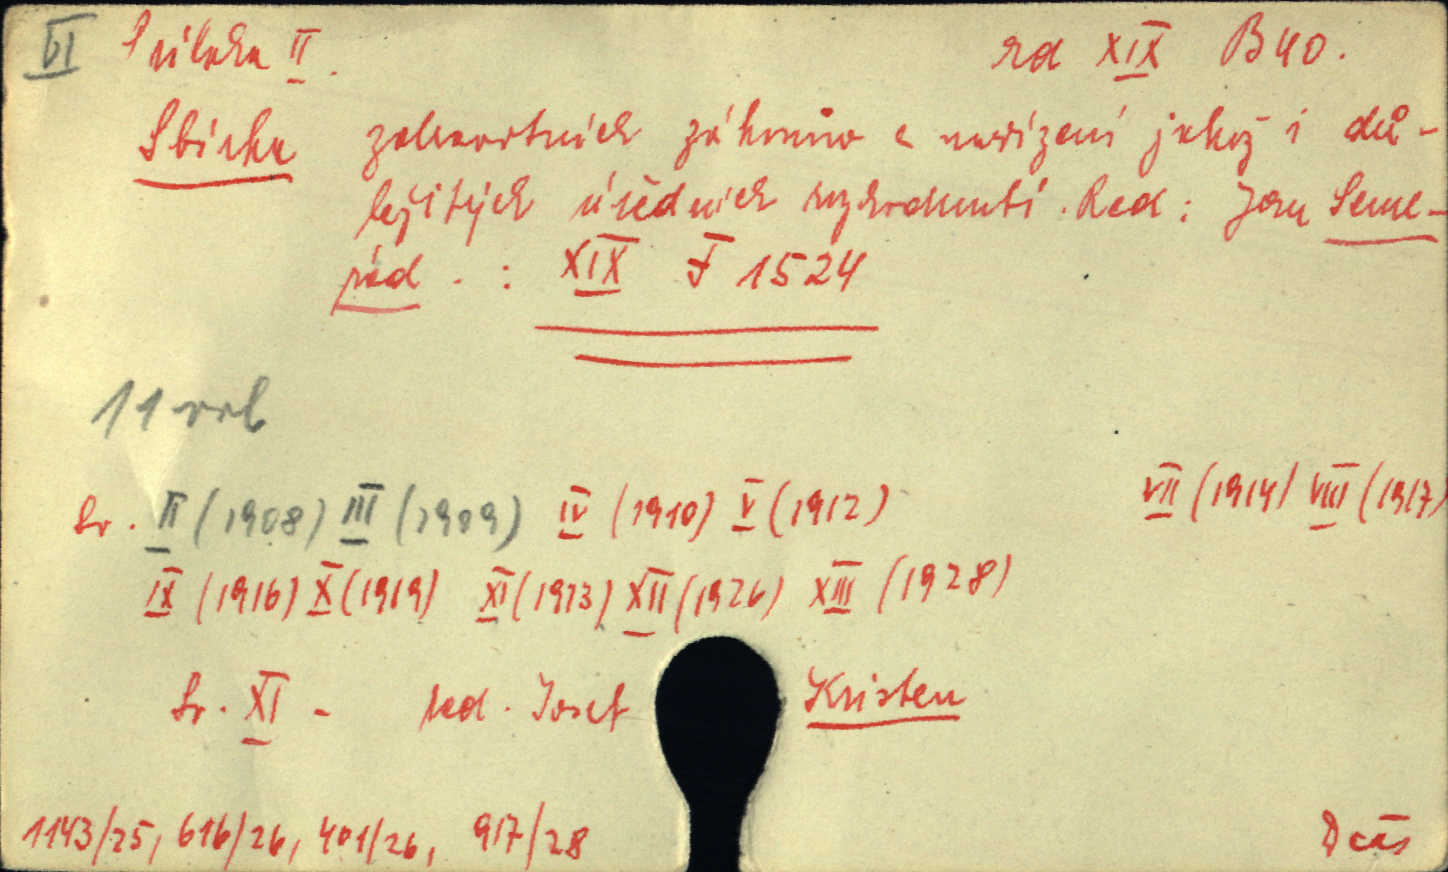 VI Příloha II. ad XIX B 40.
Sbírka zdravotních zákonův a nařízení jakož i dů-
ležitých úředních rozhodnutí. Red: Jan Seme-
rád. : XIX F 1524
11 vol
Sv. II (1908) III (1909) IV (1910) V (1912) VII (1914) VIII (1917)
IX (1916) X (1919) XI (1923) XII (1926) XIII (1928)
Sv. XI - red. Josef Kristen
1143/25, 616/26, 401/26, 917/28